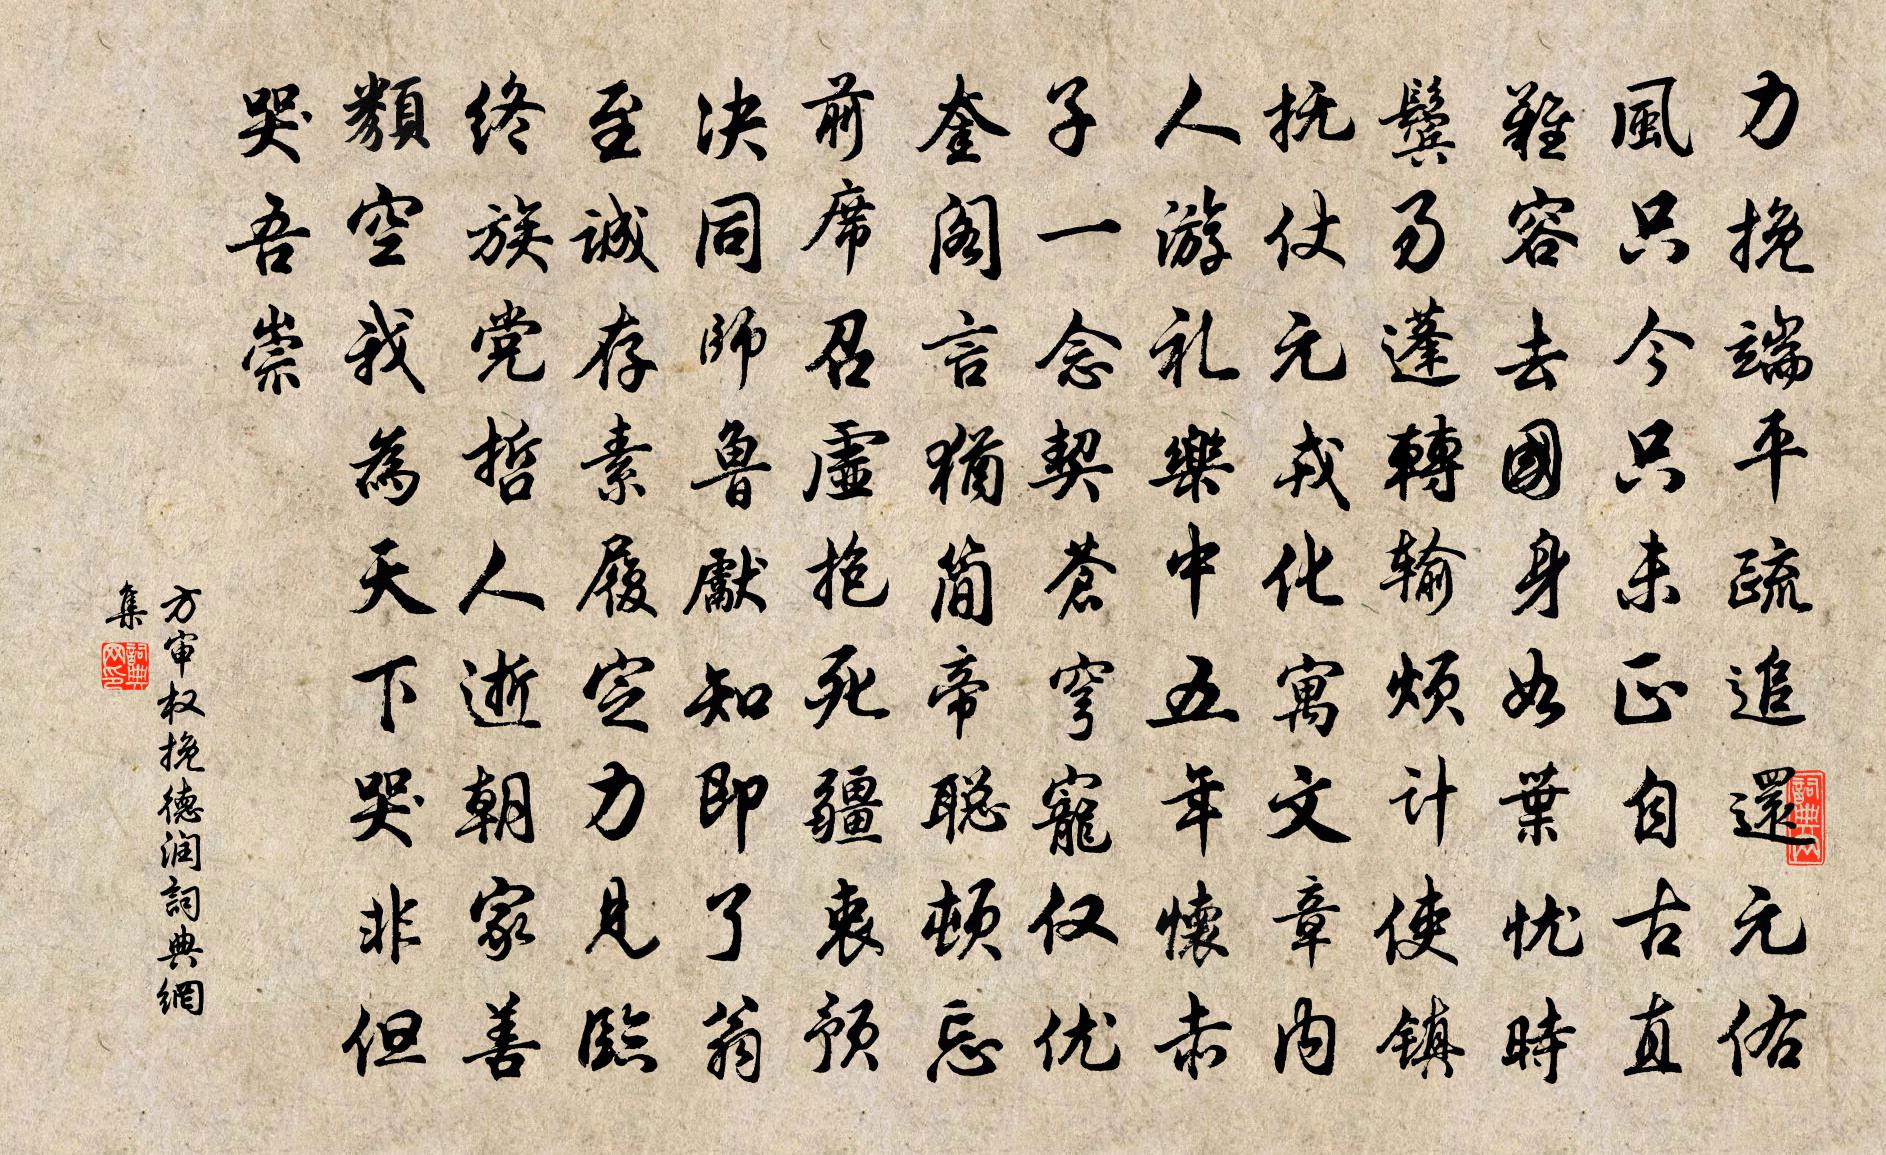 力挽端平疏追還元佑
風只今只未正自古直
難容去國身如葉忧時
鬢易蓬轉输烦计使鎮
抚仗元戎化寓文章内
人游礼樂中五年懷赤
子一念契蒼穹寵仅优
奎阁言猶简帝聪頓忘
前席召虚抱死疆衷预
決同師魯獻知即了翁
至诚存素履定力見臨
终族党哲人逝朝家善
類空我為天下哭非但
哭吾崇
方审权挽德润詞典網
集
詞典网印
詞典网